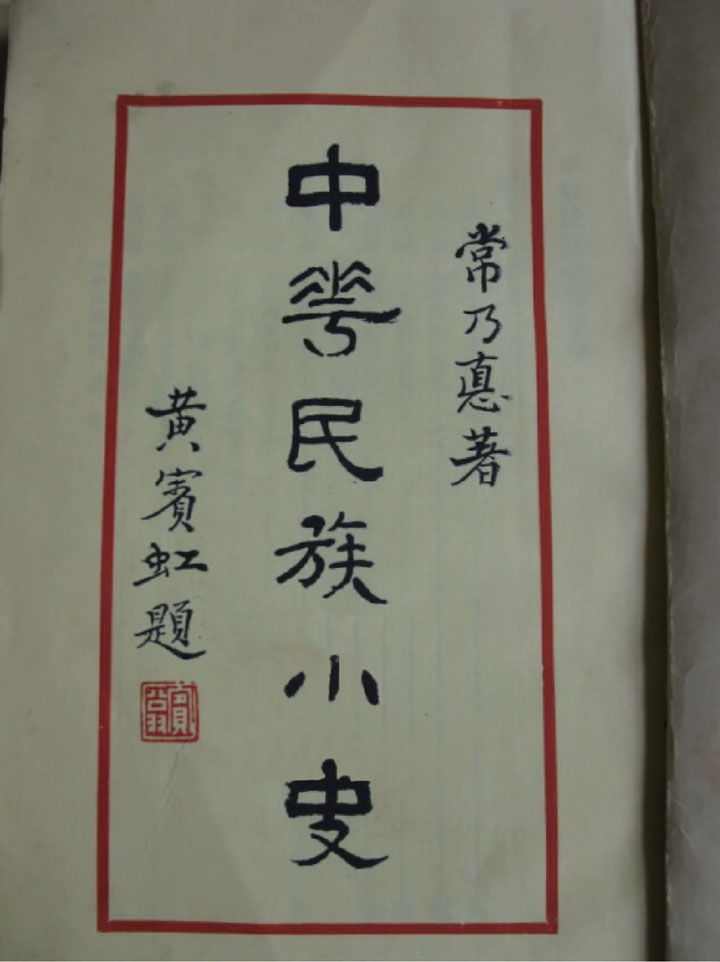 常乃惪著
中華民族小史
黃賓虹題
賓翁